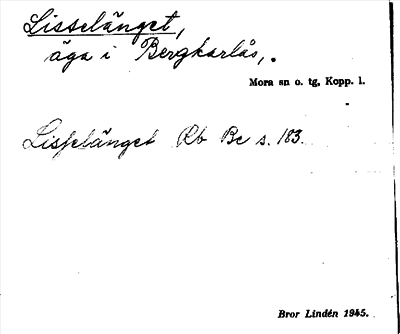 Lisselänget,
äga i Bergkarlås,.
Mora sn o. tg, Kopp. l.
Lisselänget Rb Bc s. 183.
Bror Lindén 1945.